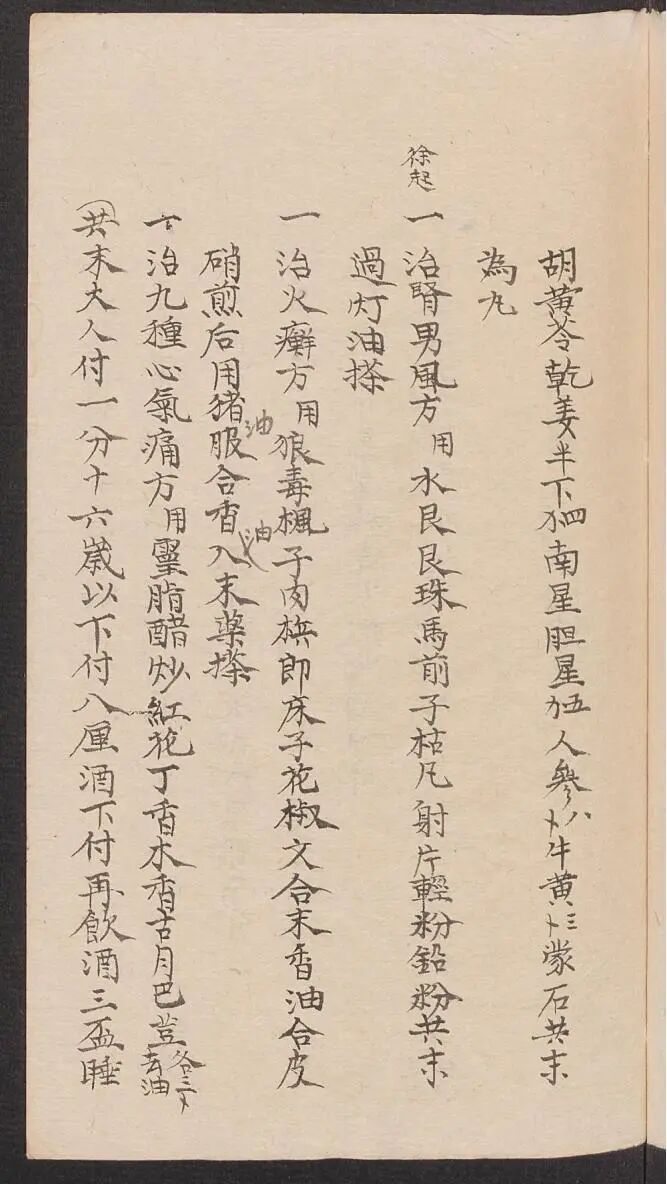 胡黄苓乾姜半下 南星胆星 人參 牛黄 蒙石共末
為九
徐起
一治腎男風方用水艮艮珠馬前子枯凡射片輕粉鉛粉共末
過灯油搽
一治火癬方用狼毒楓子肉梹郎床子花椒文合末香油合皮
硝煎后用猪服油合香油入末藥搽
一治九種心氣痛方用靈脂醋炒紅花丁香木香古月巴荳去油各三
共末大人付一分十六歲以下付八厘酒下付再飲酒三盃睡